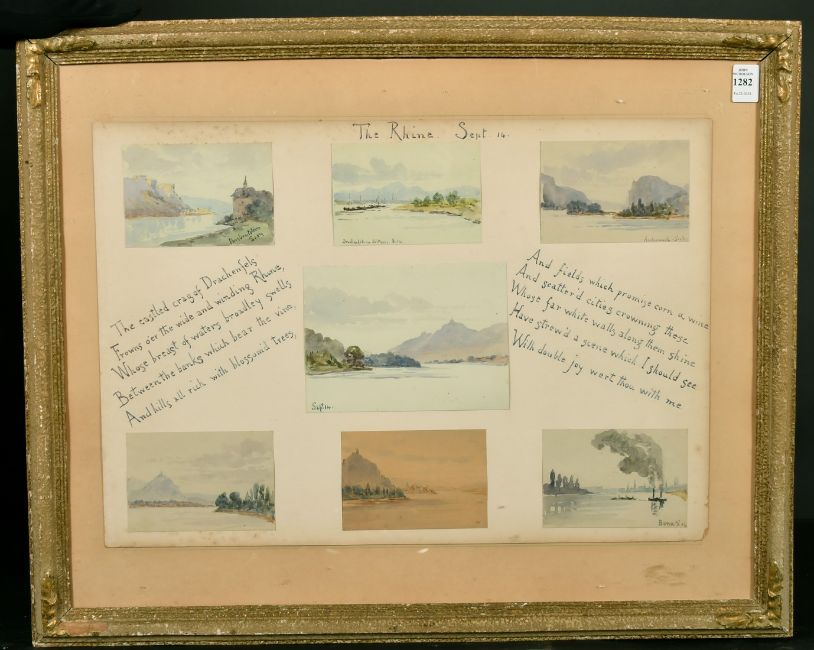 The Rhine. Sept. 14.
JOHN
NICHOLSON
1282
The castled crag of Drachenfels
Frowns oer the wide and winding Rhine,
Whose breast of waters broadley swells
Between the banks which bear the vine,
And hills all rich with blossom'd trees,
And fields which promise corn a wine
And scatter'd cities crowning these
Whose far white walls along them shine
Have strew'd a scene which I should see
With double joy wert thou with me
Sept. 14.
Bonn